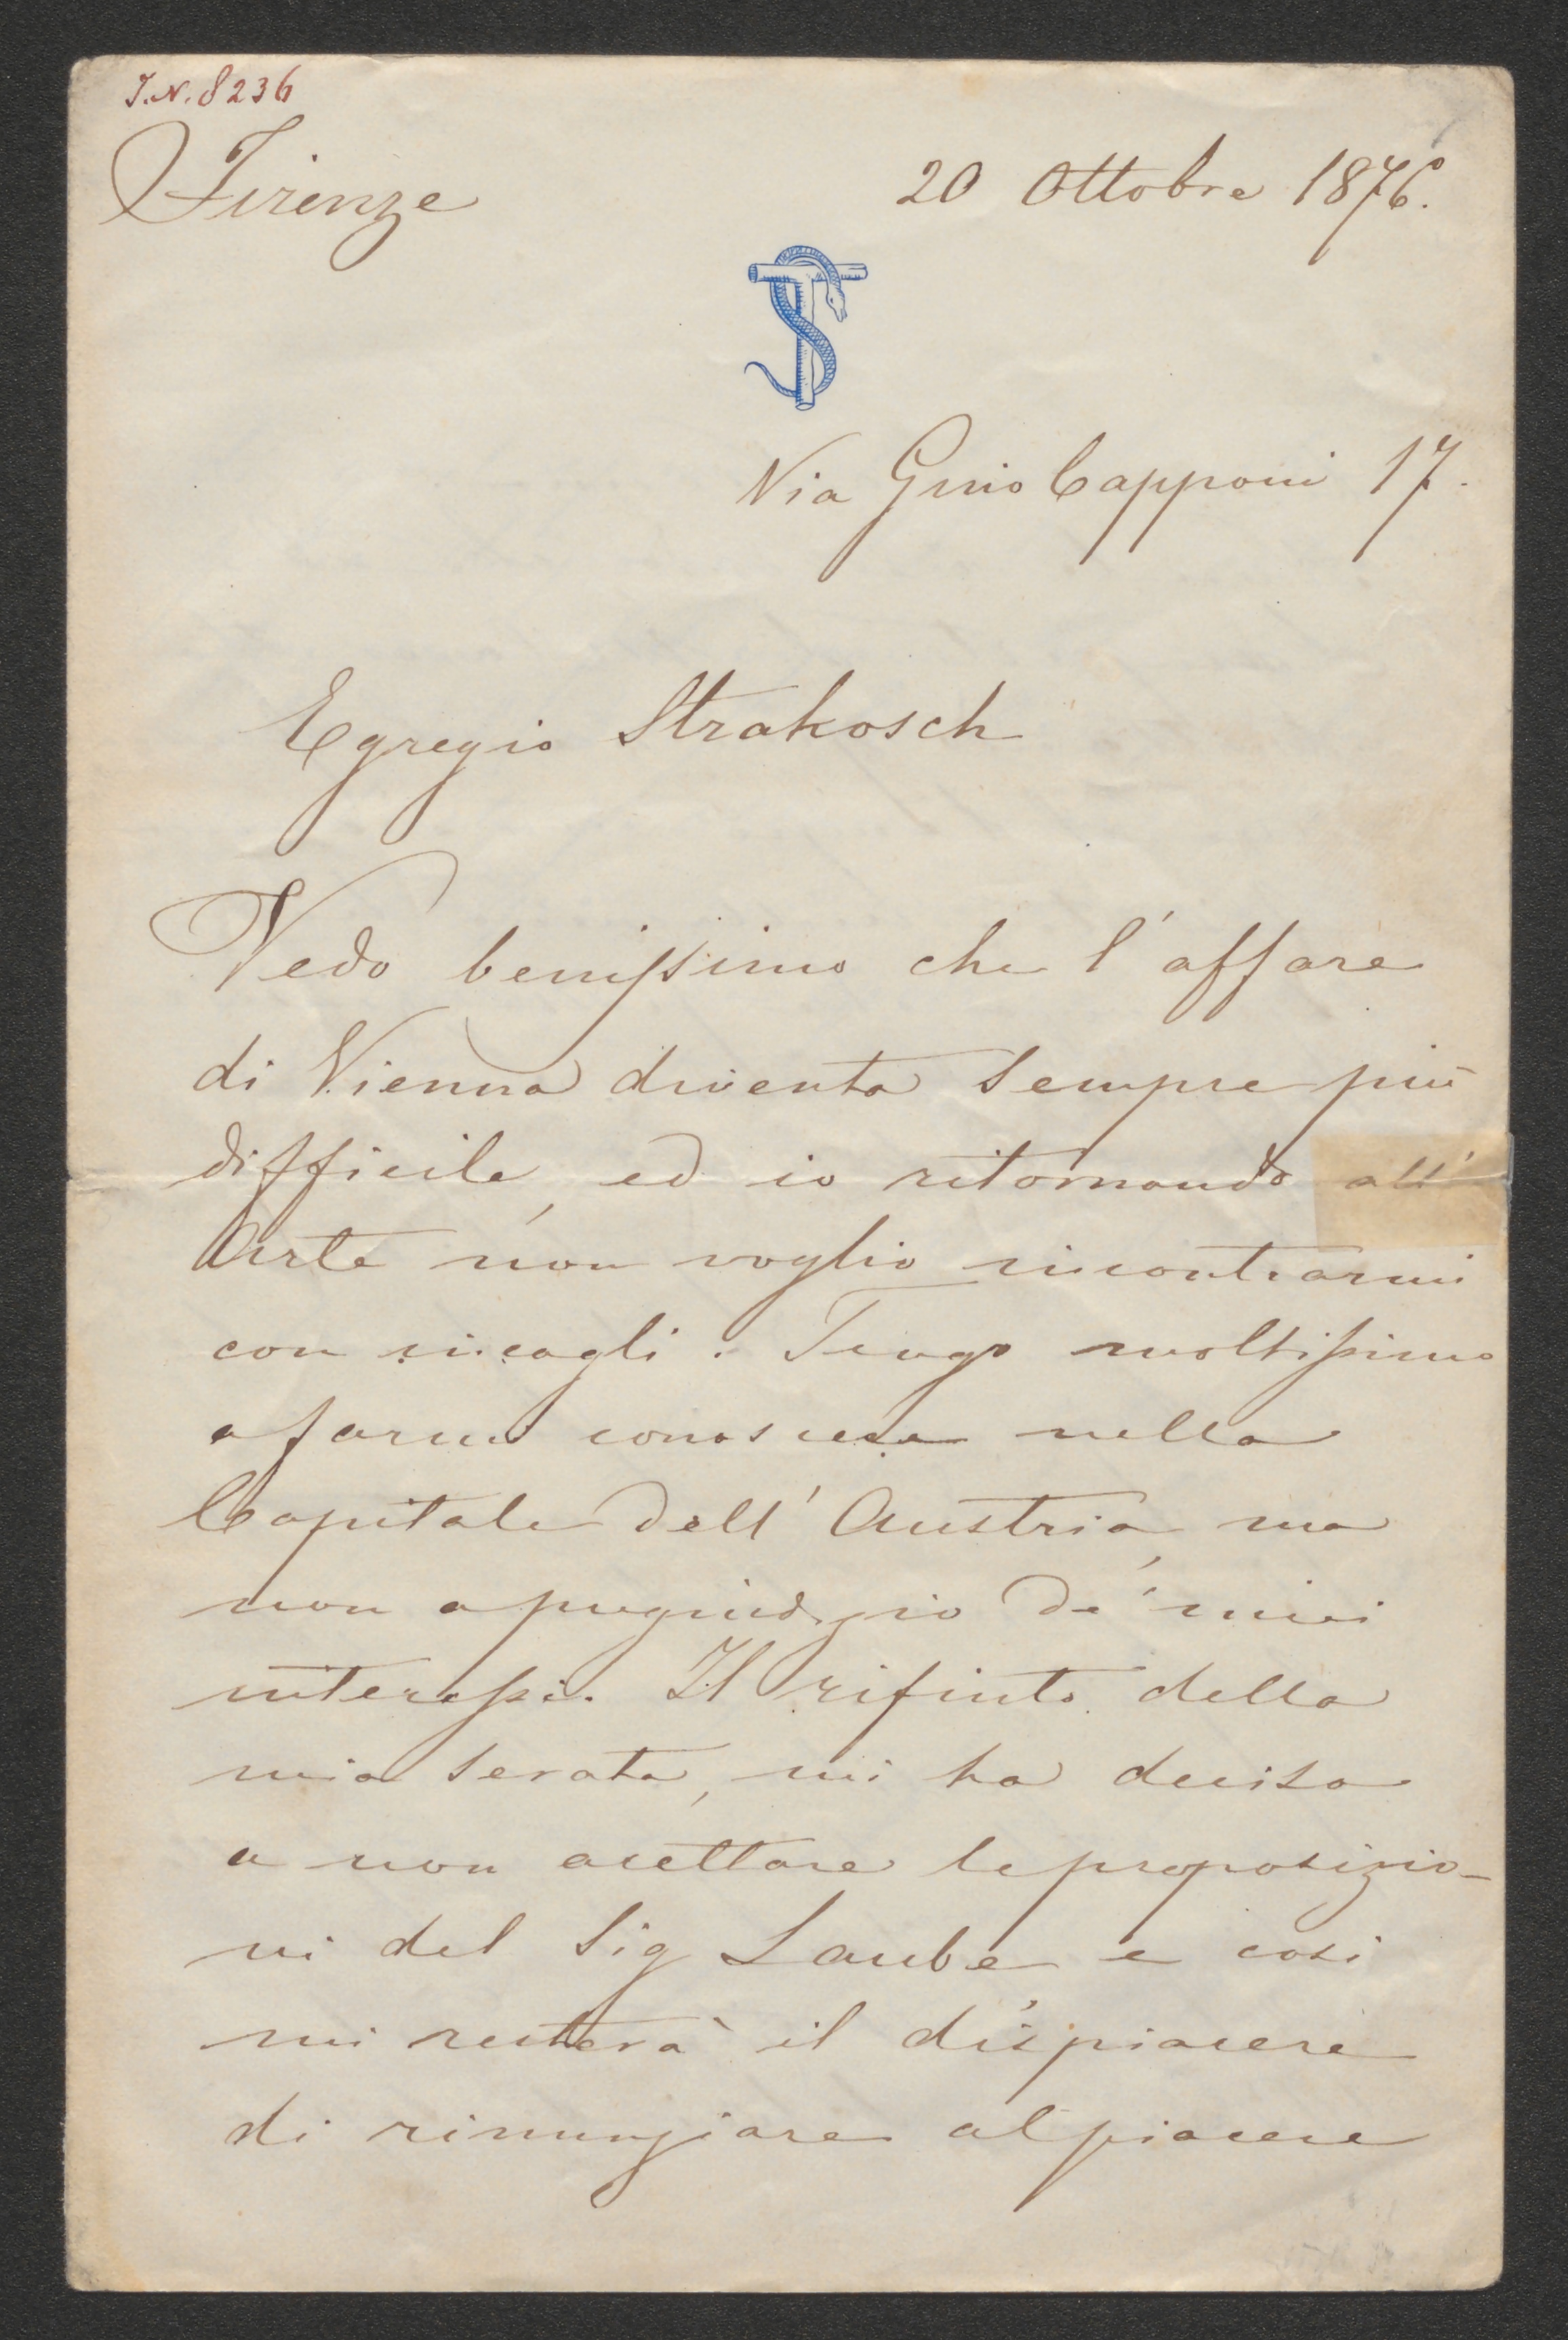 I.N. 8236
Firenze 20 Ottobre 1876.
Via Gino Capponi 17.
Egregio Strakosch
Vedo benissimo che l'affare
di Vienna diventa sempre più
difficile, ed io ritornando all'
Arte non voglio incontrarmi
con incagli. Tengo moltissimo
a farmi conoscere nella
Capitale dell'Austria, ma
non a pregiudizio de' miei
interessi. Il rifiuto della
mia serata, mi ha decisa
a non acettare le proposizio-
ni del Sig Laube e cosi
mi resterà il dispiacere
di rinunziare al piacere